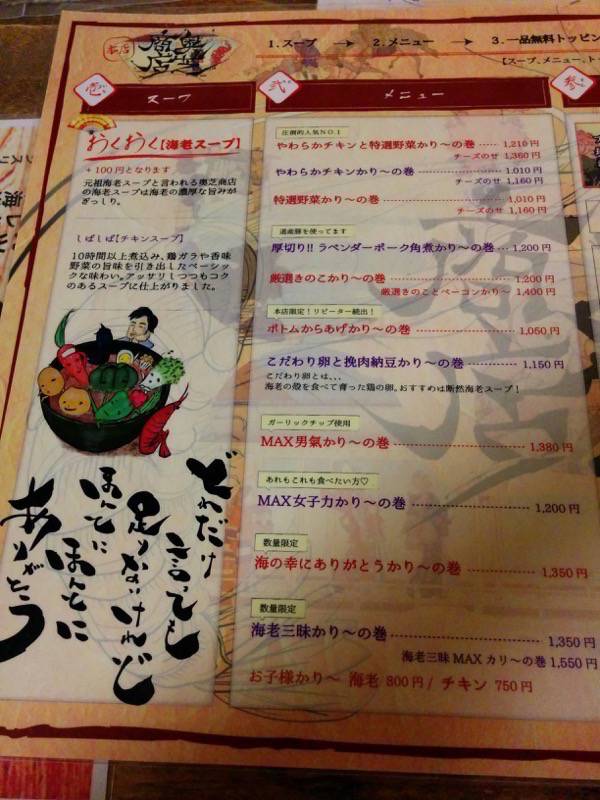 本店
奥芝商店
1.スープ → 2.メニュー → 3.一品無料トッピン
【スープ、メニュー、ト
壱
スープ
おくおく【海老スープ】
+100円となります
元祖海老スープと言われる奥芝商店
の海老スープは海老の濃厚な旨みが
ぎっしり。
しばしば【チキンスープ】
10時間以上煮込み、鶏ガラや香味
野菜の旨味を引き出したベーシッ
クな味わい。アッサリしつつもコク
のあるスープに仕上がりました。
どれだけ
言っても
足りないけれど
ほんとに
ほんとに
ありがとう
弐
メニュー
圧倒的人気NO.1
やわらかチキンと特選野菜かり〜の巻 1,210円
チーズのせ 1,360円
やわらかチキンかり〜の巻 1,010円
チーズのせ 1,160円
特選野菜かり〜の巻 1,010円
チーズのせ 1,160円
道産豚を使ってます
厚切り!! ラベンダーポーク角煮かり〜の巻 1,200円
厳選きのこかり〜の巻 1,200円
厳選きのことベーコンかり〜 1,400円
本店限定！リピーター続出！
ボトムからあげかり〜の巻 1,050円
こだわり卵と挽肉納豆かり〜の巻 1,150円
こだわり卵とは、、、
海老の殻を食べて育った鶏の卵。おすすめは断然海老スープ！
ガーリックチップ使用
MAX男氣かり〜の巻 1,380円
あれもこれも食べたい方♡
MAX女子力かり〜の巻 1,200円
数量限定
海の幸にありがとうかり〜の巻 1,350円
数量限定
海老三昧かり〜の巻 1,350円
海老三昧MAXカリ〜の巻 1,550円
お子様かり〜 海老 800円/ チキン 750円
参